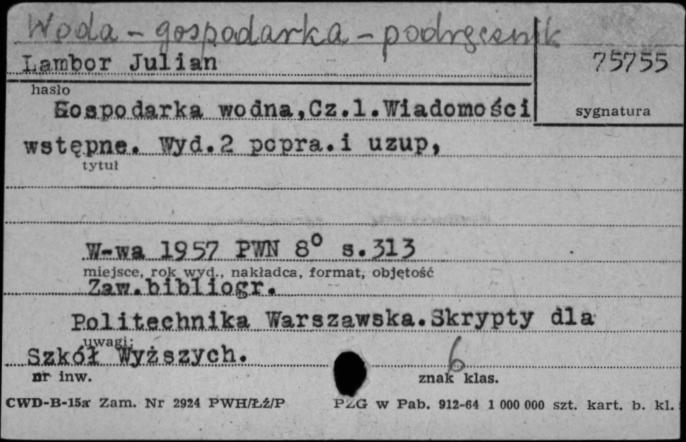 Woda – gospodarka – podręcznik
Lambor Julian
75755
hasło
Gospodarka wodna,Cz.1.Wiadomości
sygnatura
wstępne. Wyd.2 popra.i uzup,
tytuł
W-wa 1957 PWN 8° s.313
miejsce, rok wyd., nakładca, format, objętość
Zaw.bibliogr.
Politechnika Warszawska.Skrypty dla
uwagi:
Szkół Wyższych.
6
nr inw.
znak klas.
CWD-B-15a Zam. Nr 2924 PWH/Łź/P
PZG w Pab. 912-64 1 000 000 szt. kart. b. kl.